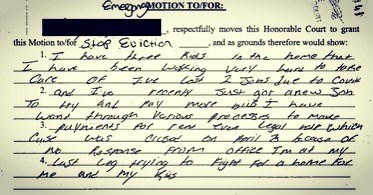 Emergency MOTION TO/FOR:
, respectfully moves this Honorable Court to grant
this Motion to/for Stop Eviction, and as grounds therefore would show:
1. I have three Kids in the home that
I have been working very hard to take
Care of I've lost 2 Jobs due to Covid
2. and I've recently Just got a new Job
To try and Pay more bills I have
went through various process to make
3. Payments for rent even Legal which
Case was closed on April because of
no Response from office I'm at my
4. Last Leg trying to fight for a home for
me and my Kids